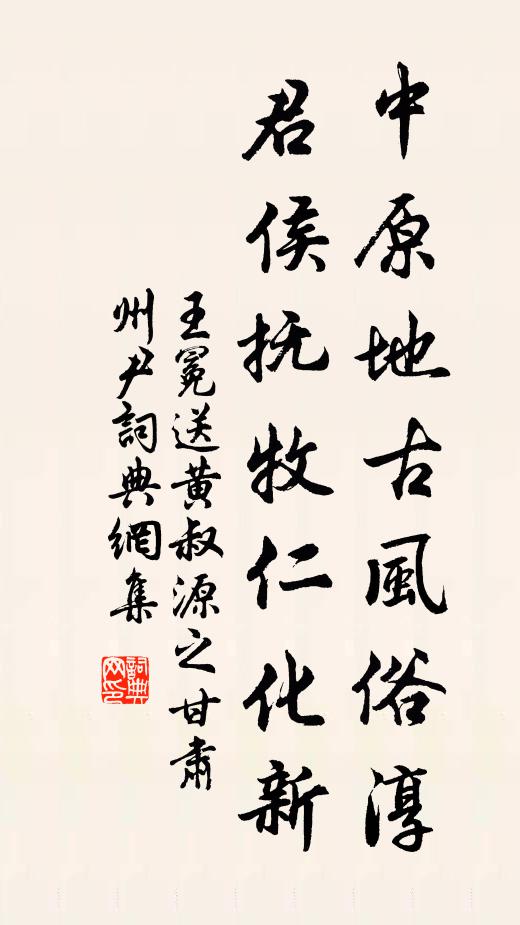 中原地古風俗淳
君侯抚牧仁化新
王冕送黄叔源之甘肅
州尹詞典網集
詞典网印